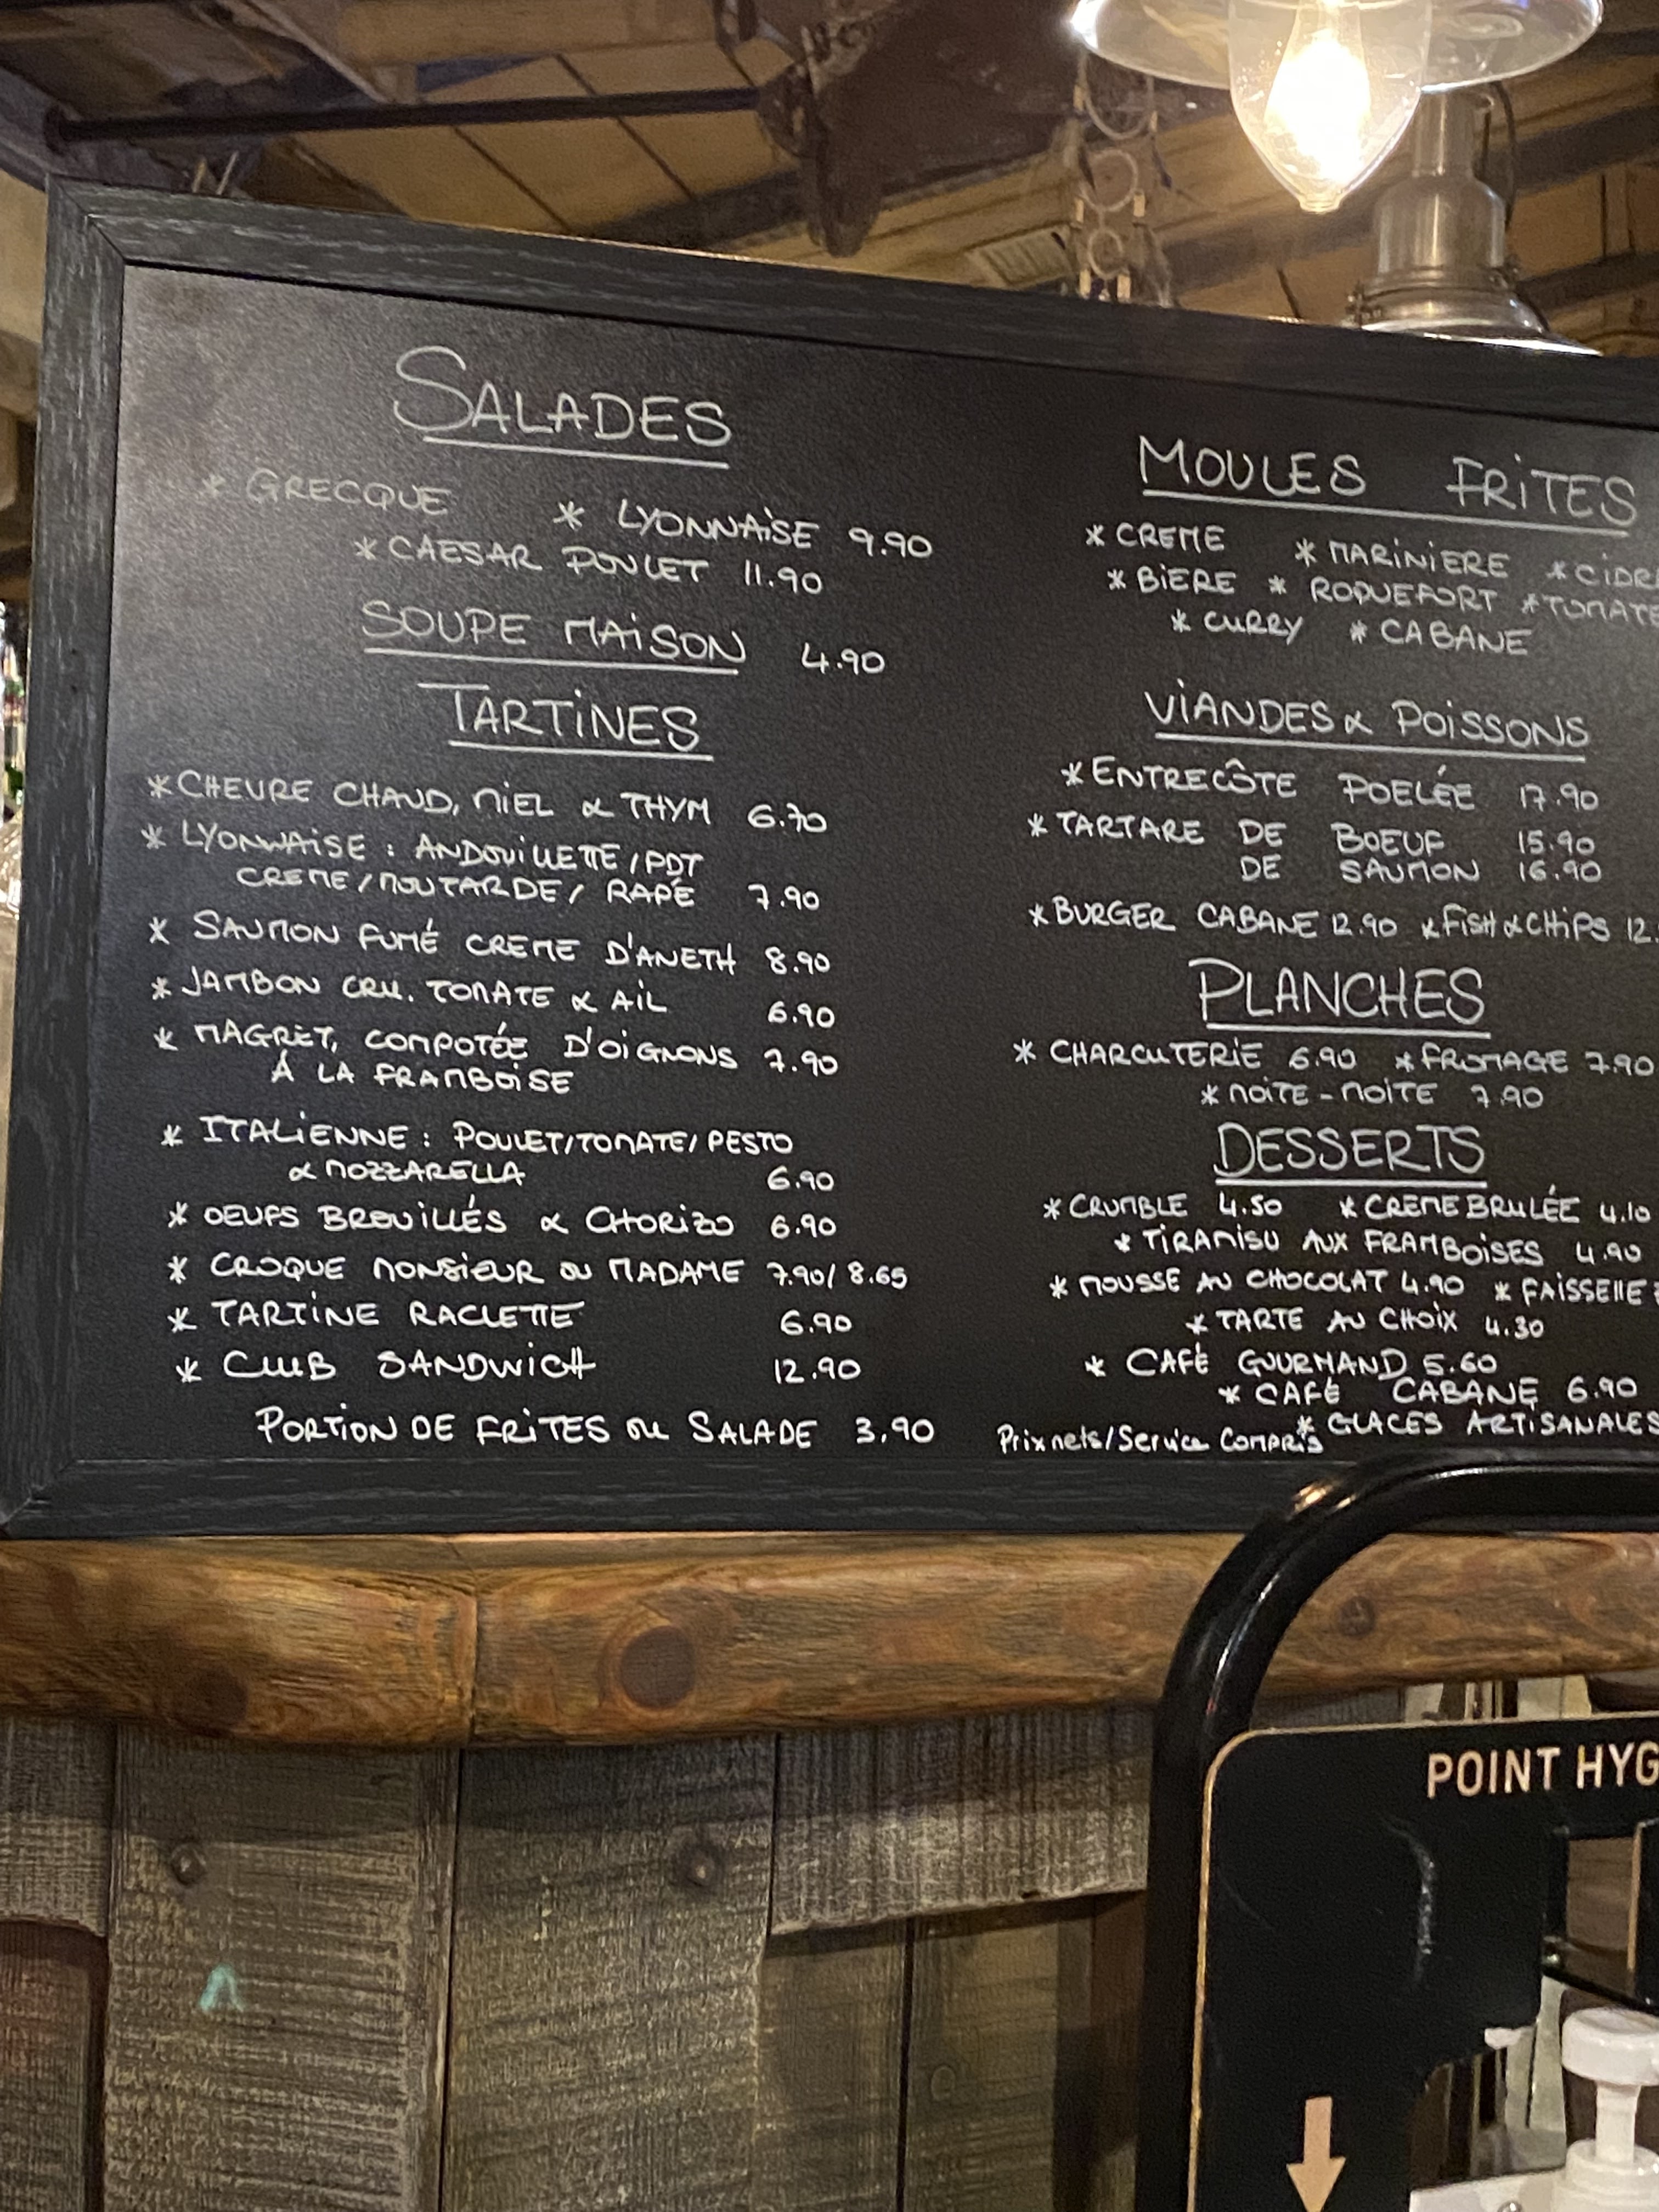 SALADES
* GRECQUE * LYONNAISE 9.90
* CAESAR POULET 11.90
SOUPE MAISON 4.90
TARTINES
* CHEVRE CHAUD, MIEL & THYM 6.70
* LYONNAISE : ANDOUILLETTE/PDT
CREME/MOUTARDE/ RAPÉ 7.90
* SAUMON FUMÉ CREME D'ANETH 8.90
* JAMBON CRU. TOMATE & AIL 6.90
* MAGRET, COMPOTÉE D'OIGNONS 7.90
À LA FRAMBOISE
* ITALIENNE : POULET/TOMATE/PESTO
& MOZZARELLA 6.90
* OEUFS BROUILLÉS & CHORIZO 6.90
* CROQUE MONSIEUR OU MADAME 7.90/8.65
* TARTINE RACLETTE 6.90
* CLUB SANDWICH 12.90
PORTION DE FRITES OU SALADE 3.90
MOULES FRITES
* CREME * MARINIERE * CIDR
* BIERE * ROQUEFORT * TOMATE
* CURRY * CABANE
VIANDES & POISSONS
* ENTRECÔTE POELÉE 17.90
* TARTARE DE BOEUF 15.90
DE SAUMON 16.90
* BURGER CABANE 12.90 * FISH & CHIPS 12.
PLANCHES
* CHARCUTERIE 6.90 * FROMAGE 7.90
* MOITE-MOITE 7.90
DESSERTS
* CRUMBLE 4.50 * CREME BRULÉE 4.10
* TIRAMISU AUX FRAMBOISES 4.90
* MOUSSE AU CHOCOLAT 4.90 * FAISSELLE
* TARTE AU CHOIX 4.30
* CAFÉ GOURMAND 5.60
* CAFÉ CABANE 6.90
* GLACES ARTISANALES
Prix nets/Service Compris
POINT HYG